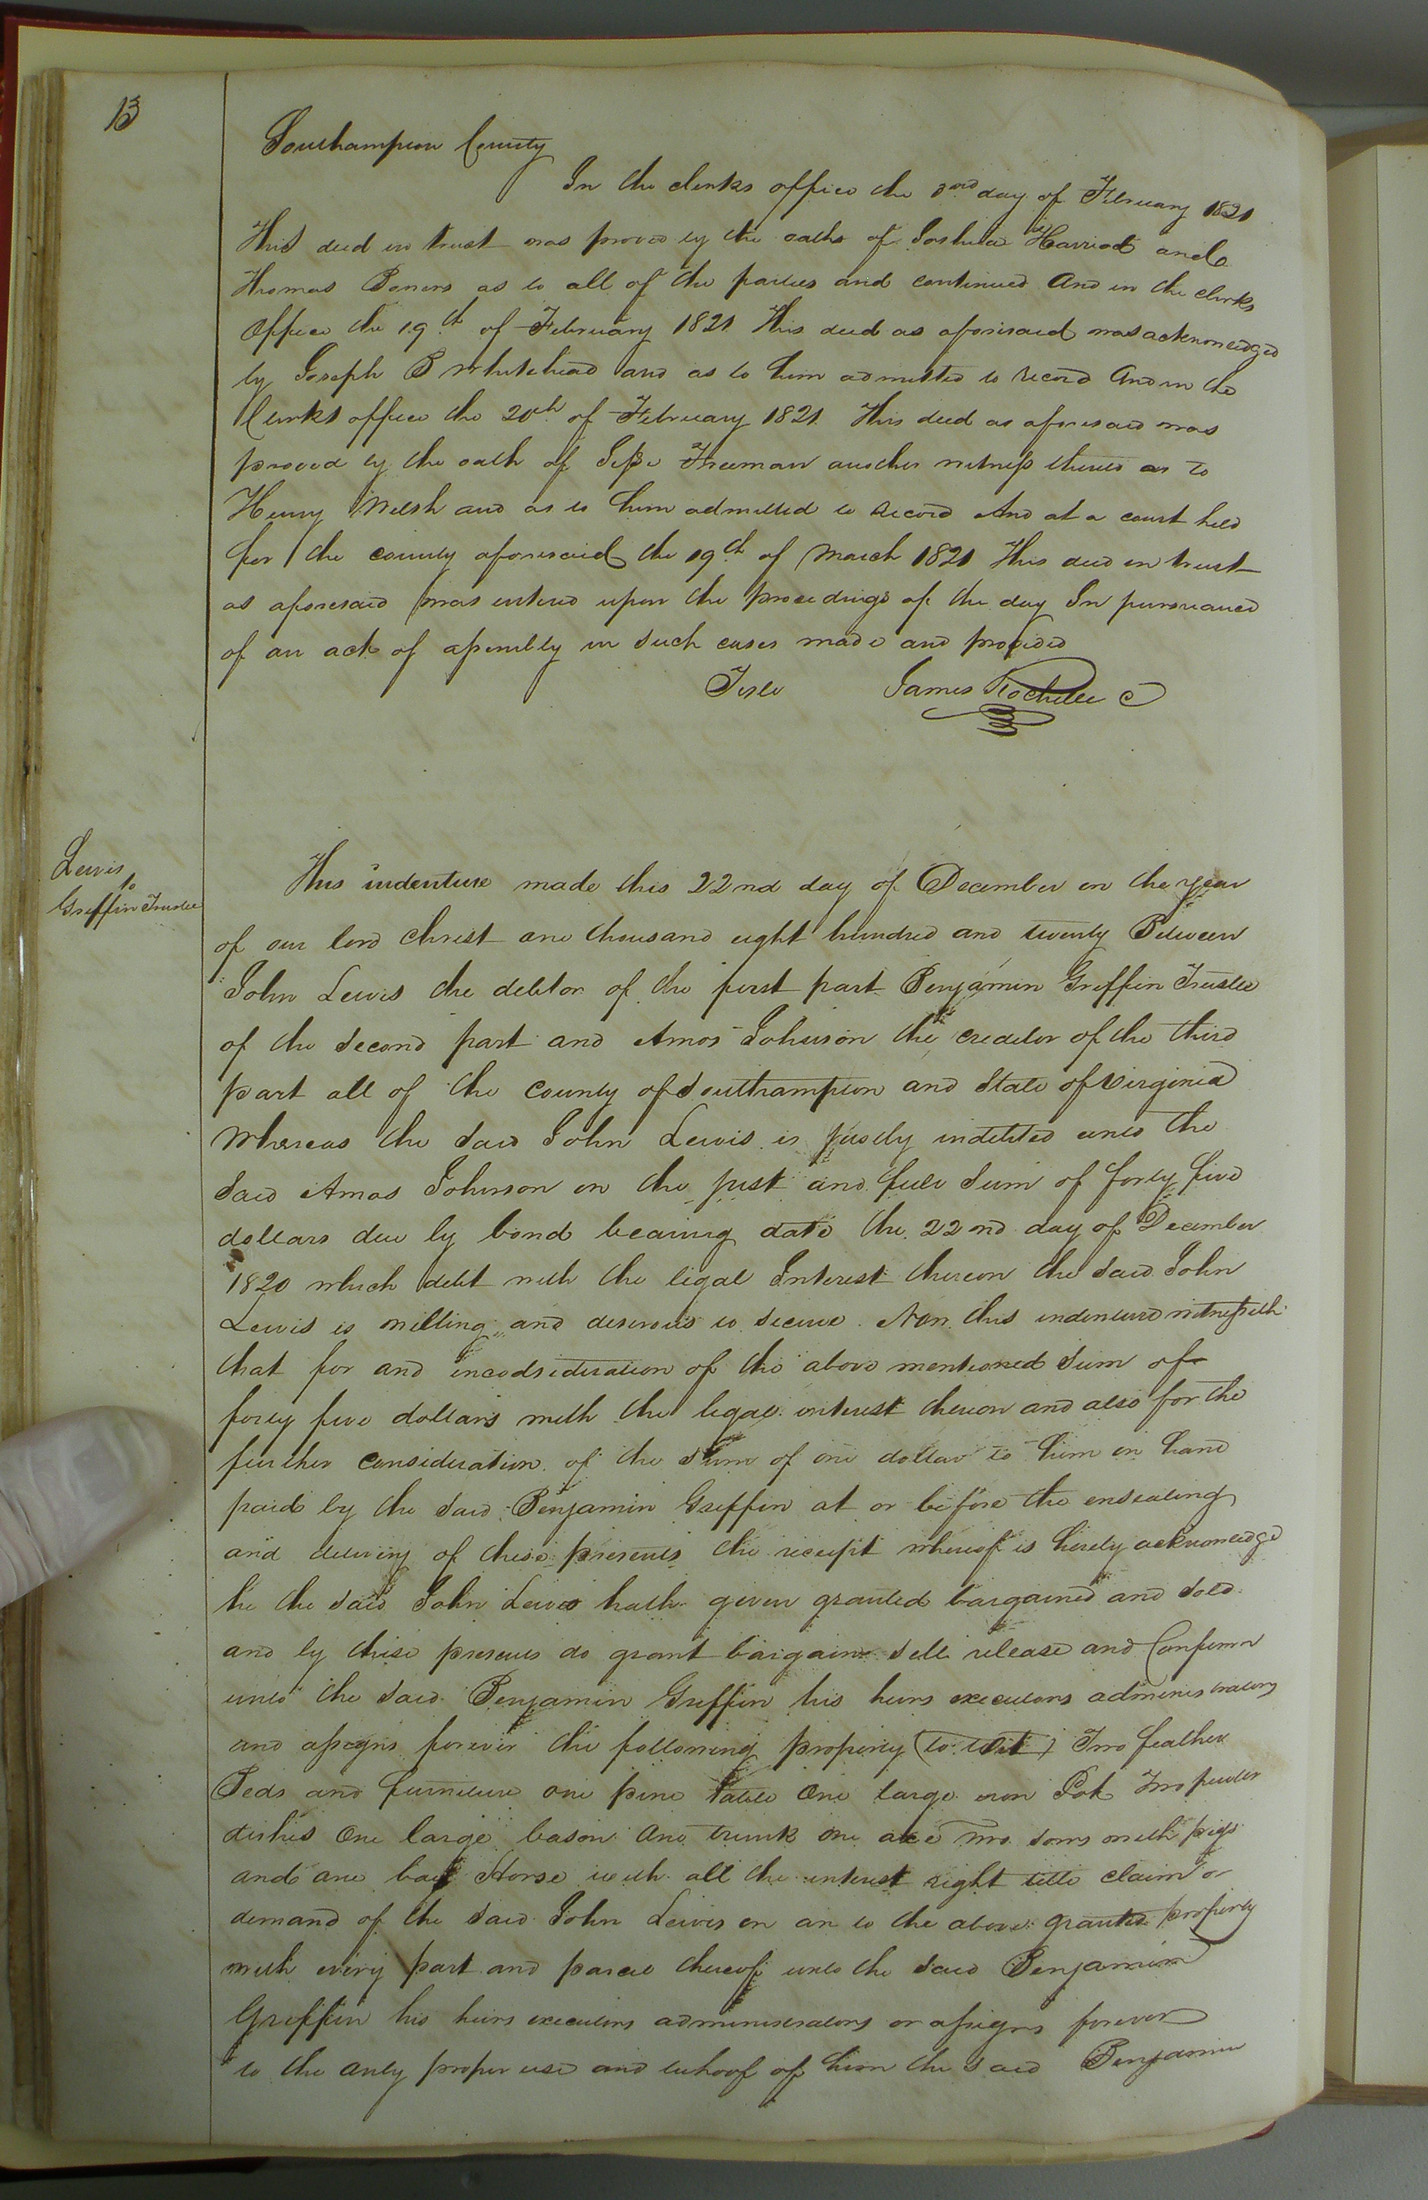 13
Southampton County
In the clerks office the 3rd day of February 1821
This deed in trust was proved by the oaths of Joshua Harriot and
Thomas Boners as to all of the parties and continued And in the clerks
Office the 19th of February 1821 This deed as aforesaid was acknowledged
by Joseph B Whitehead and as to him admitted to record And in the
Clerks office the 20th of February 1821 This deed as aforesaid was
proved by the oath of Jesse Freeman another witness thereto as to
Henry Welsh and as to him admitted to record And at a court held
for the county aforesaid the 19th of March 1821 This deed in trust
as aforesaid was entered upon the proceedings of the day In pursuance
of an act of assembly in such cases made and provided
Teste James Rochelle C
Lewis
to
Griffin Trustee
This indenture made this 22nd day of December in the year
of our lord Christ one thousand eight hundred and twenty Between
John Lewis the debtor of the first part Benjamin Griffin Trustee
of the second part and Amos Johnson the creditor of the third
part all of the county of Southampton and State of Virginia
Whereas the said John Lewis is justly indebted unto the
said Amos Johnson in the just and full sum of forty five
dollars due by bond bearing date the 22nd day of December
1820 which debt with the legal Interest thereon the said John
Lewis is willing and desirous to secure. Now this indenture witnesseth
that for and incodsideration of the above mentioned sum of
forty five dollars with the legal interest thereon and also for the
further consideration of the sum of one dollar to him in hand
paid by the said Benjamin Griffin at or before the ensealing
and delivery of these presents the receipt whereof is hereby acknowledge
he the said John Lewis hath given granted bargained and sold
and by these presents do grant bargain sell release and Confirm
unto the said Benjamin Griffin his heirs executors administrators
and assigns forever the following property (to wit) Two feather
Beds and furniture one pine table one large iron Pot Two pewter
dishes One large bason One trunk one axe two sows with pigs
and one bay Horse with all the interest right title claim or
demand of the said John Lewis in an to the above granted property
with every part and parcel thereof unto the said Benjamin
Griffin his heirs executors administrators or assigns forever
to the only proper use and behoof of him the said Benjamin